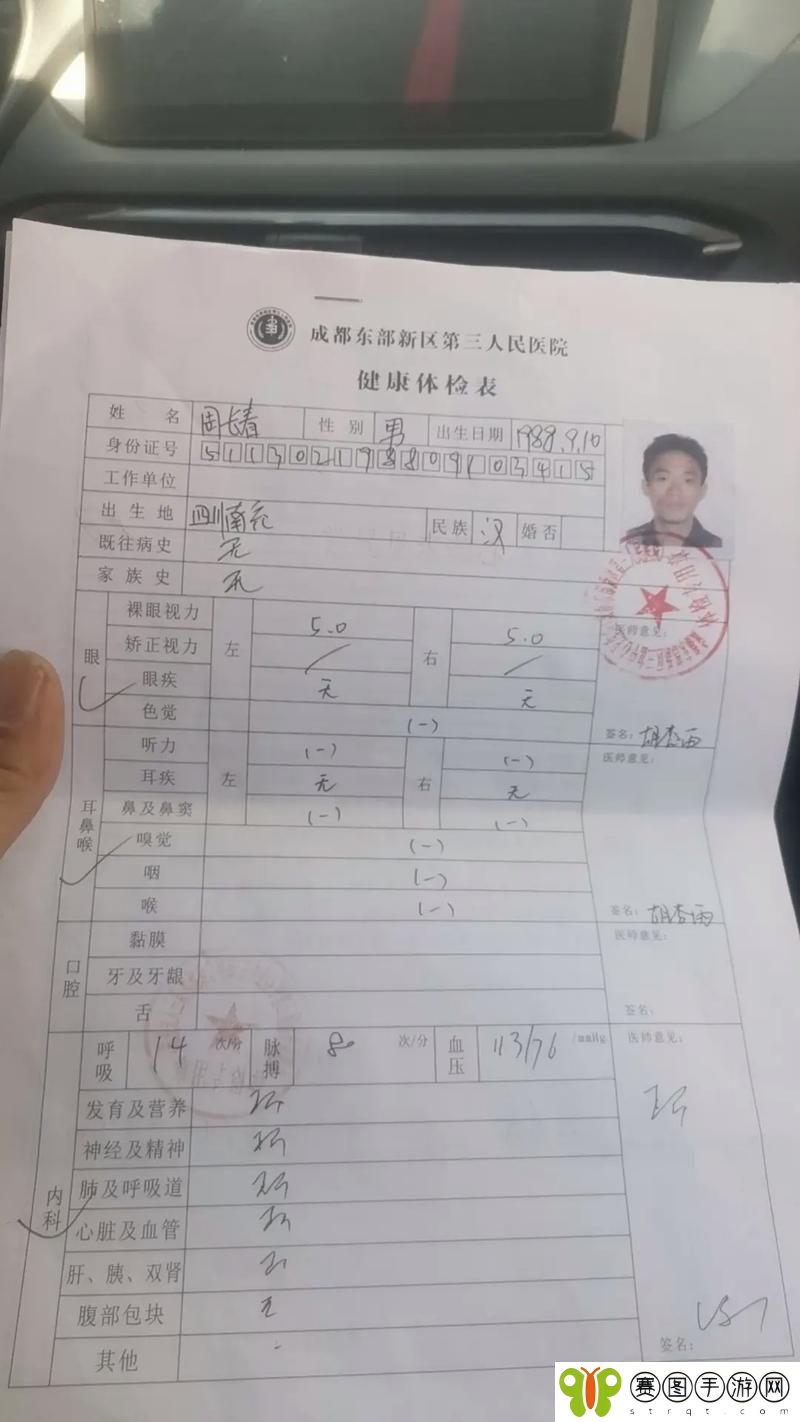 成都东部新区第三人民医院
健康体检表
姓 名 周长春 性 别 男 出生日期 1988.9.10
身份证号 511302198809103415
工作单位
出 生 地 四川南充 民族 汉 婚否
既往病史 无
家 族 史 无
眼 裸眼视力 左 5.0 右 5.0 医师意见:
矫正视力 / /
眼疾 无 无
色觉 (一) 签名: 胡杏雨
耳鼻喉 听力 左 (一) 右 (一) 医师意见:
耳疾 无 无
鼻及鼻窦 (一) (一)
嗅觉 (一)
咽 (一)
喉 (一) 签名: 胡杏雨
口腔 黏膜 医师意见:
牙及牙龈
舌 签名:
内科 呼吸 14 次/分 脉搏 80 次/分 血压 113/76 /mmHg 医师意见:
发育及营养
神经及精神
肺及呼吸道
心脏及血管
肝、胰、双肾
腹部包块 无
其他 - 签名:
赛图手游网
strqt.com